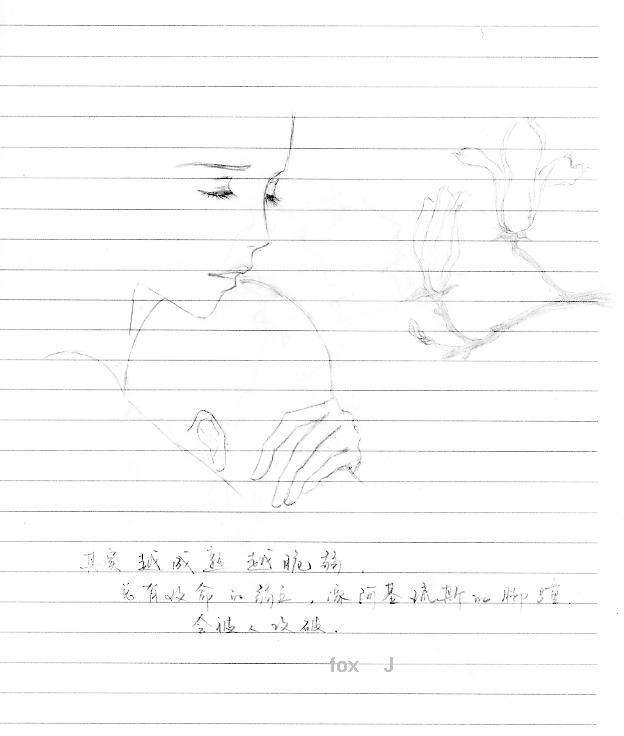 其实越成熟越脆弱.
总有致命的弱点,像阿基琉斯的脚踵.
会被人攻破.
fox J